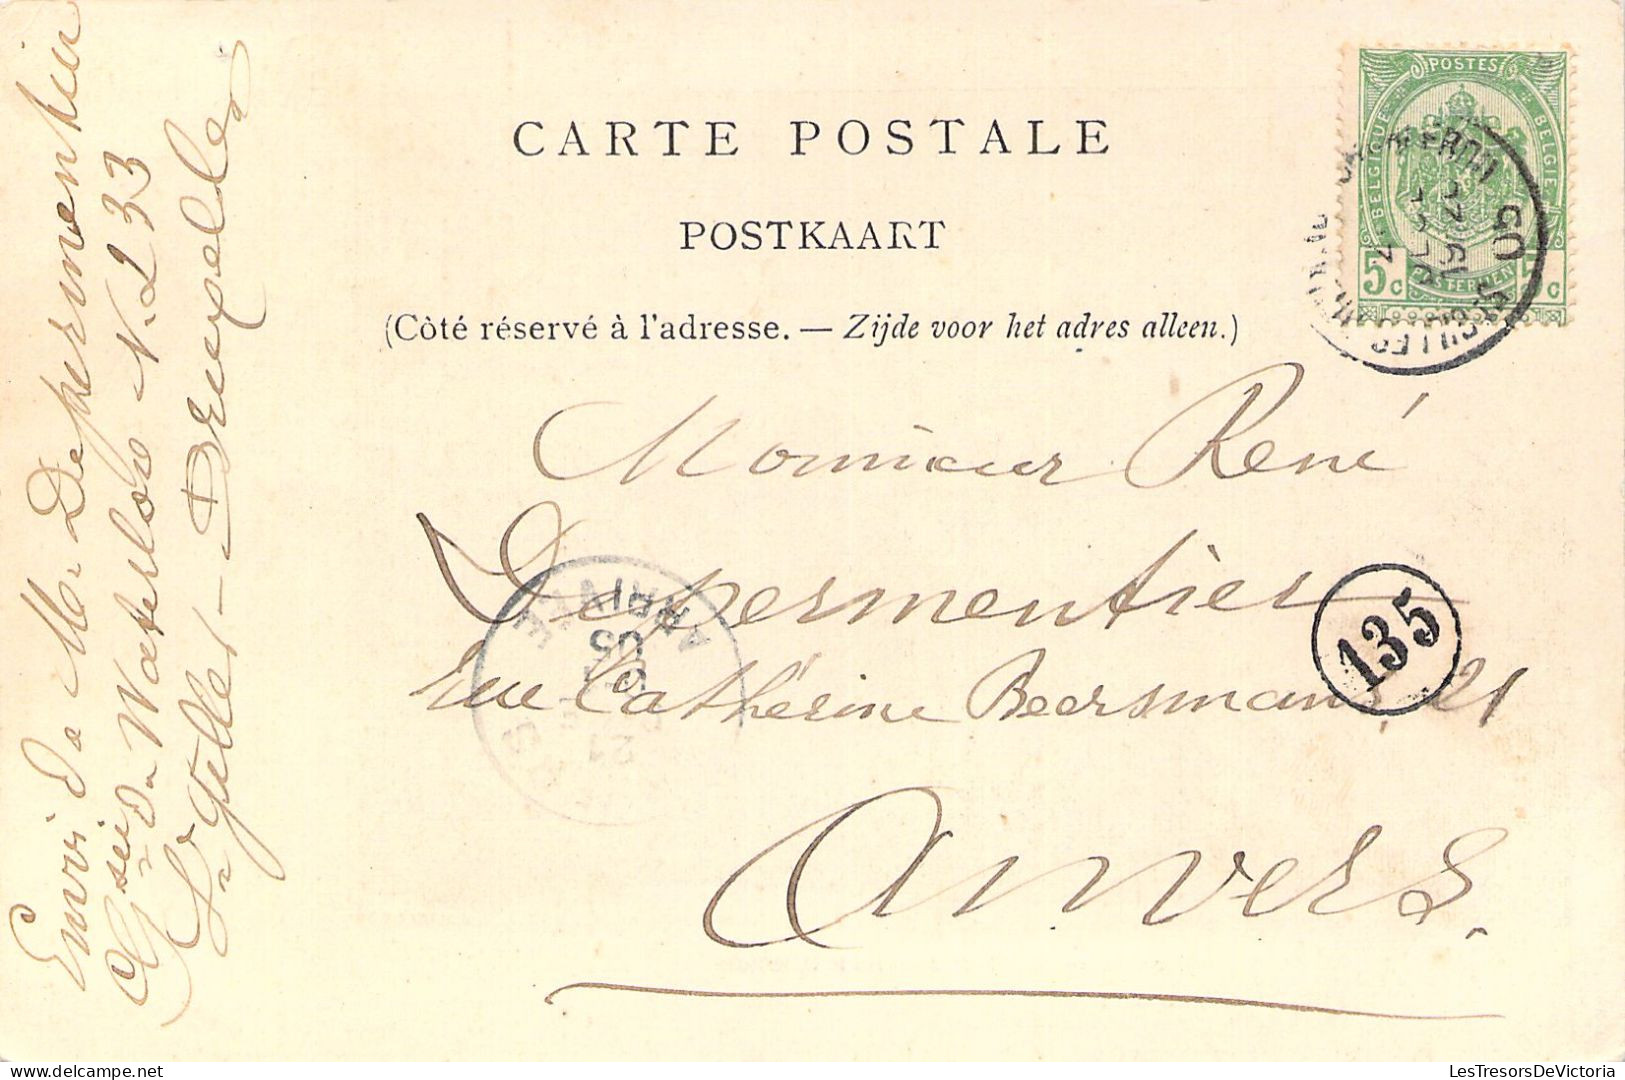 CARTE POSTALE
POSTKAART
(Côté réservé à l'adresse. — Zijde voor het adres alleen.)
POSTES
BELGIQUE
BELGIË
5c
POSTERIJEN
5c
Monsieur René
Depermentier
Rue Catherine Beersmans, 21
Anvers.
135
ARRIVÉE
05
21
Envoi de Mr Depermentier
Chsée de Waterloo N. 233
St Gilles - Bruxelles
LesTresorsDeVictoria